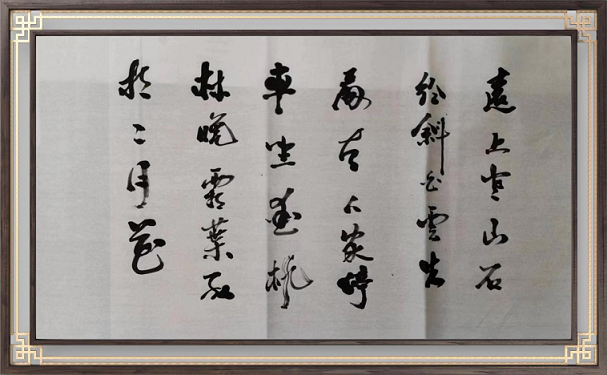 遠上寒山石
徑斜白雲生
處有人家停
車坐愛楓
林晚霜葉紅
於二月花